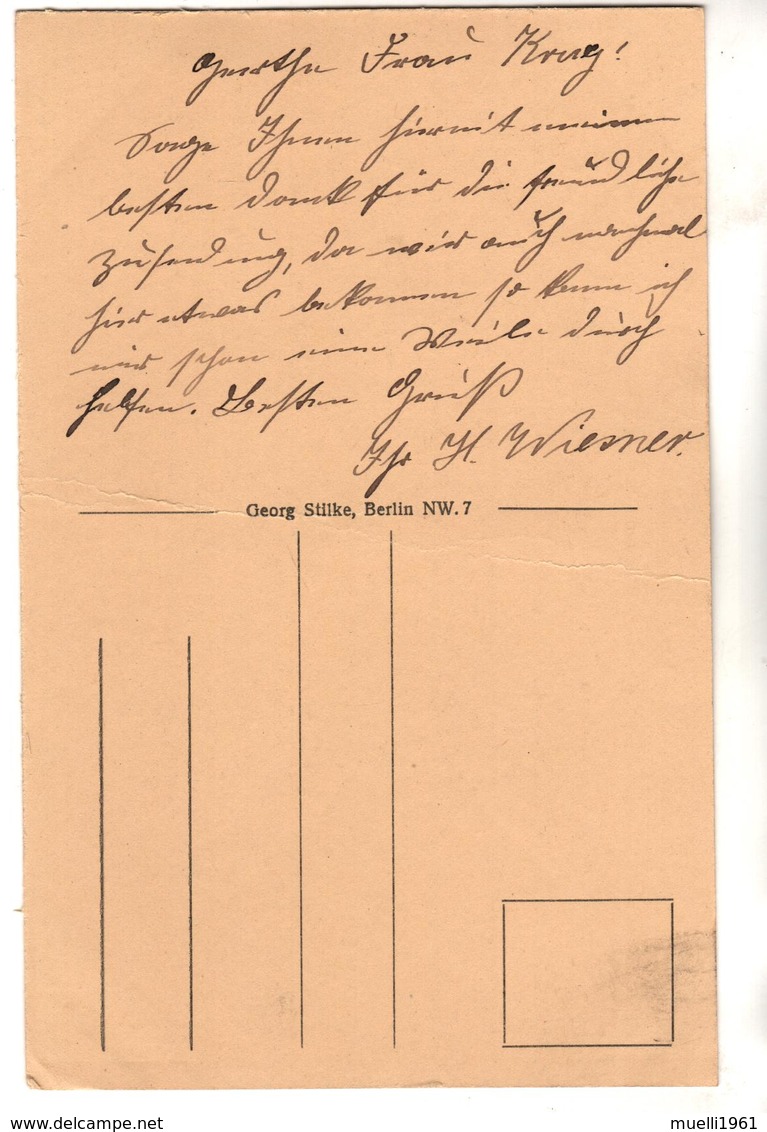 Geerthe Frau Krug!
Sage Ihnen hiermit meinen
besten Dank für die freundliche
Zusendung, da wir auch nochmal
hier etwas bekommen so kann ich
mir schon eine Weile durch
helfen. Besten Gruß
Ihr H. Wiesner.
Georg Stilke, Berlin NW. 7
www.delcampe.net
muelli1961